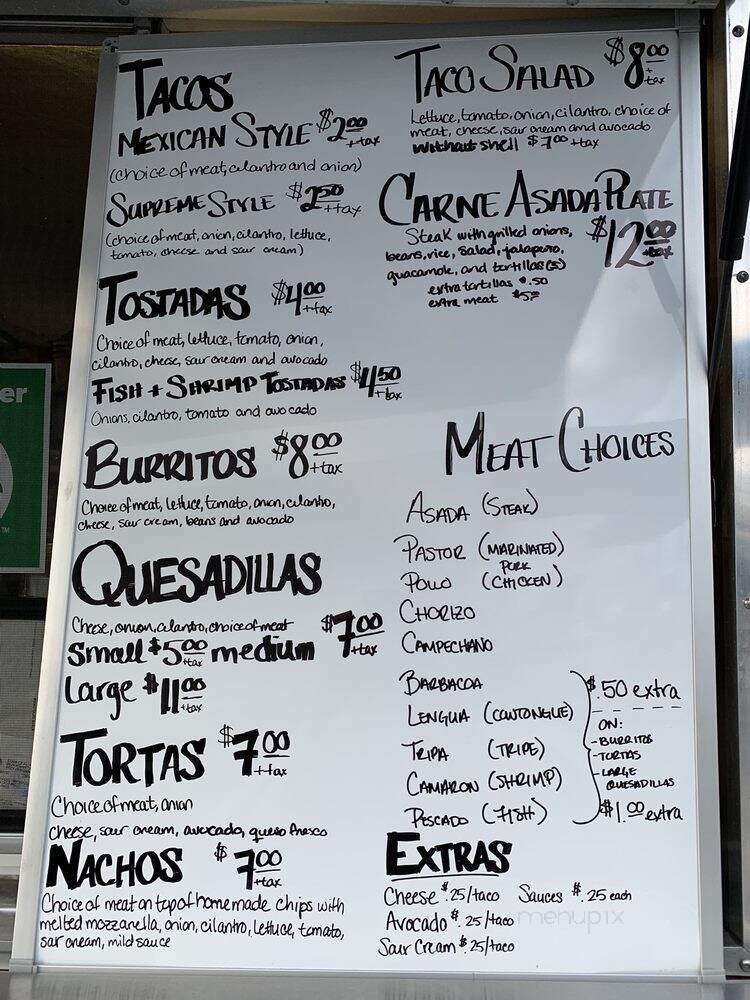 TACOS
MEXICAN STYLE $2.00 +tax
(choice of meat, cilantro and onion)
SUPREME STYLE $2.50 +tax
(choice of meat, onion, cilantro, lettuce,
tomato, cheese and sour cream)
TOSTADAS $4.00 +tax
Choice of meat, lettuce, tomato, onion,
cilantro, cheese, sour cream and avocado
FISH + SHRIMP TOSTADAS $4.50 +tax
Onions, cilantro, tomato and avocado
BURRITOS $8.00 +tax
Choice of meat, lettuce, tomato, onion, cilantro,
cheese, sour cream, beans and avocado
QUESADILLAS
Cheese, onion, cilantro, choice of meat
Small $5.00 +tax medium $7.00 +tax
Large $11.00 +tax
TORTAS $7.00 +tax
Choice of meat, onion
cheese, sour cream, avocado, queso fresco
NACHOS $7.00 +tax
Choice of meat on top of homemade chips with
melted mozzarella, onion, cilantro, lettuce, tomato,
sour cream, mild sauce
TACO SALAD $8.00 +tax
Lettuce, tomato, onion, cilantro, choice of
meat, cheese, sour cream and avocado
without shell $7.00 +tax
CARNE ASADA PLATE
$12.00 +tax
Steak with grilled onions,
beans, rice, salad, jalapeno,
guacamole, and tortillas(5)
extra tortillas $.50
extra meat $5.00
MEAT CHOICES
ASADA (STEAK)
PASTOR (MARINATED PORK)
POLLO (CHICKEN)
CHORIZO
CAMPECHANO
BARBACOA
LENGUA (COWTONGUE)
TRIPA (TRIPE)
CAMARON (SHRIMP)
PESCADO (FISH)
$.50 extra
ON:
-BURRITOS
-TORTAS
-LARGE
QUESADILLAS
$1.00 extra
EXTRAS
Cheese $.25/taco Sauces $.25 each
Avocado $.25/taco
Sour Cream $.25/taco
menupix
er
TM